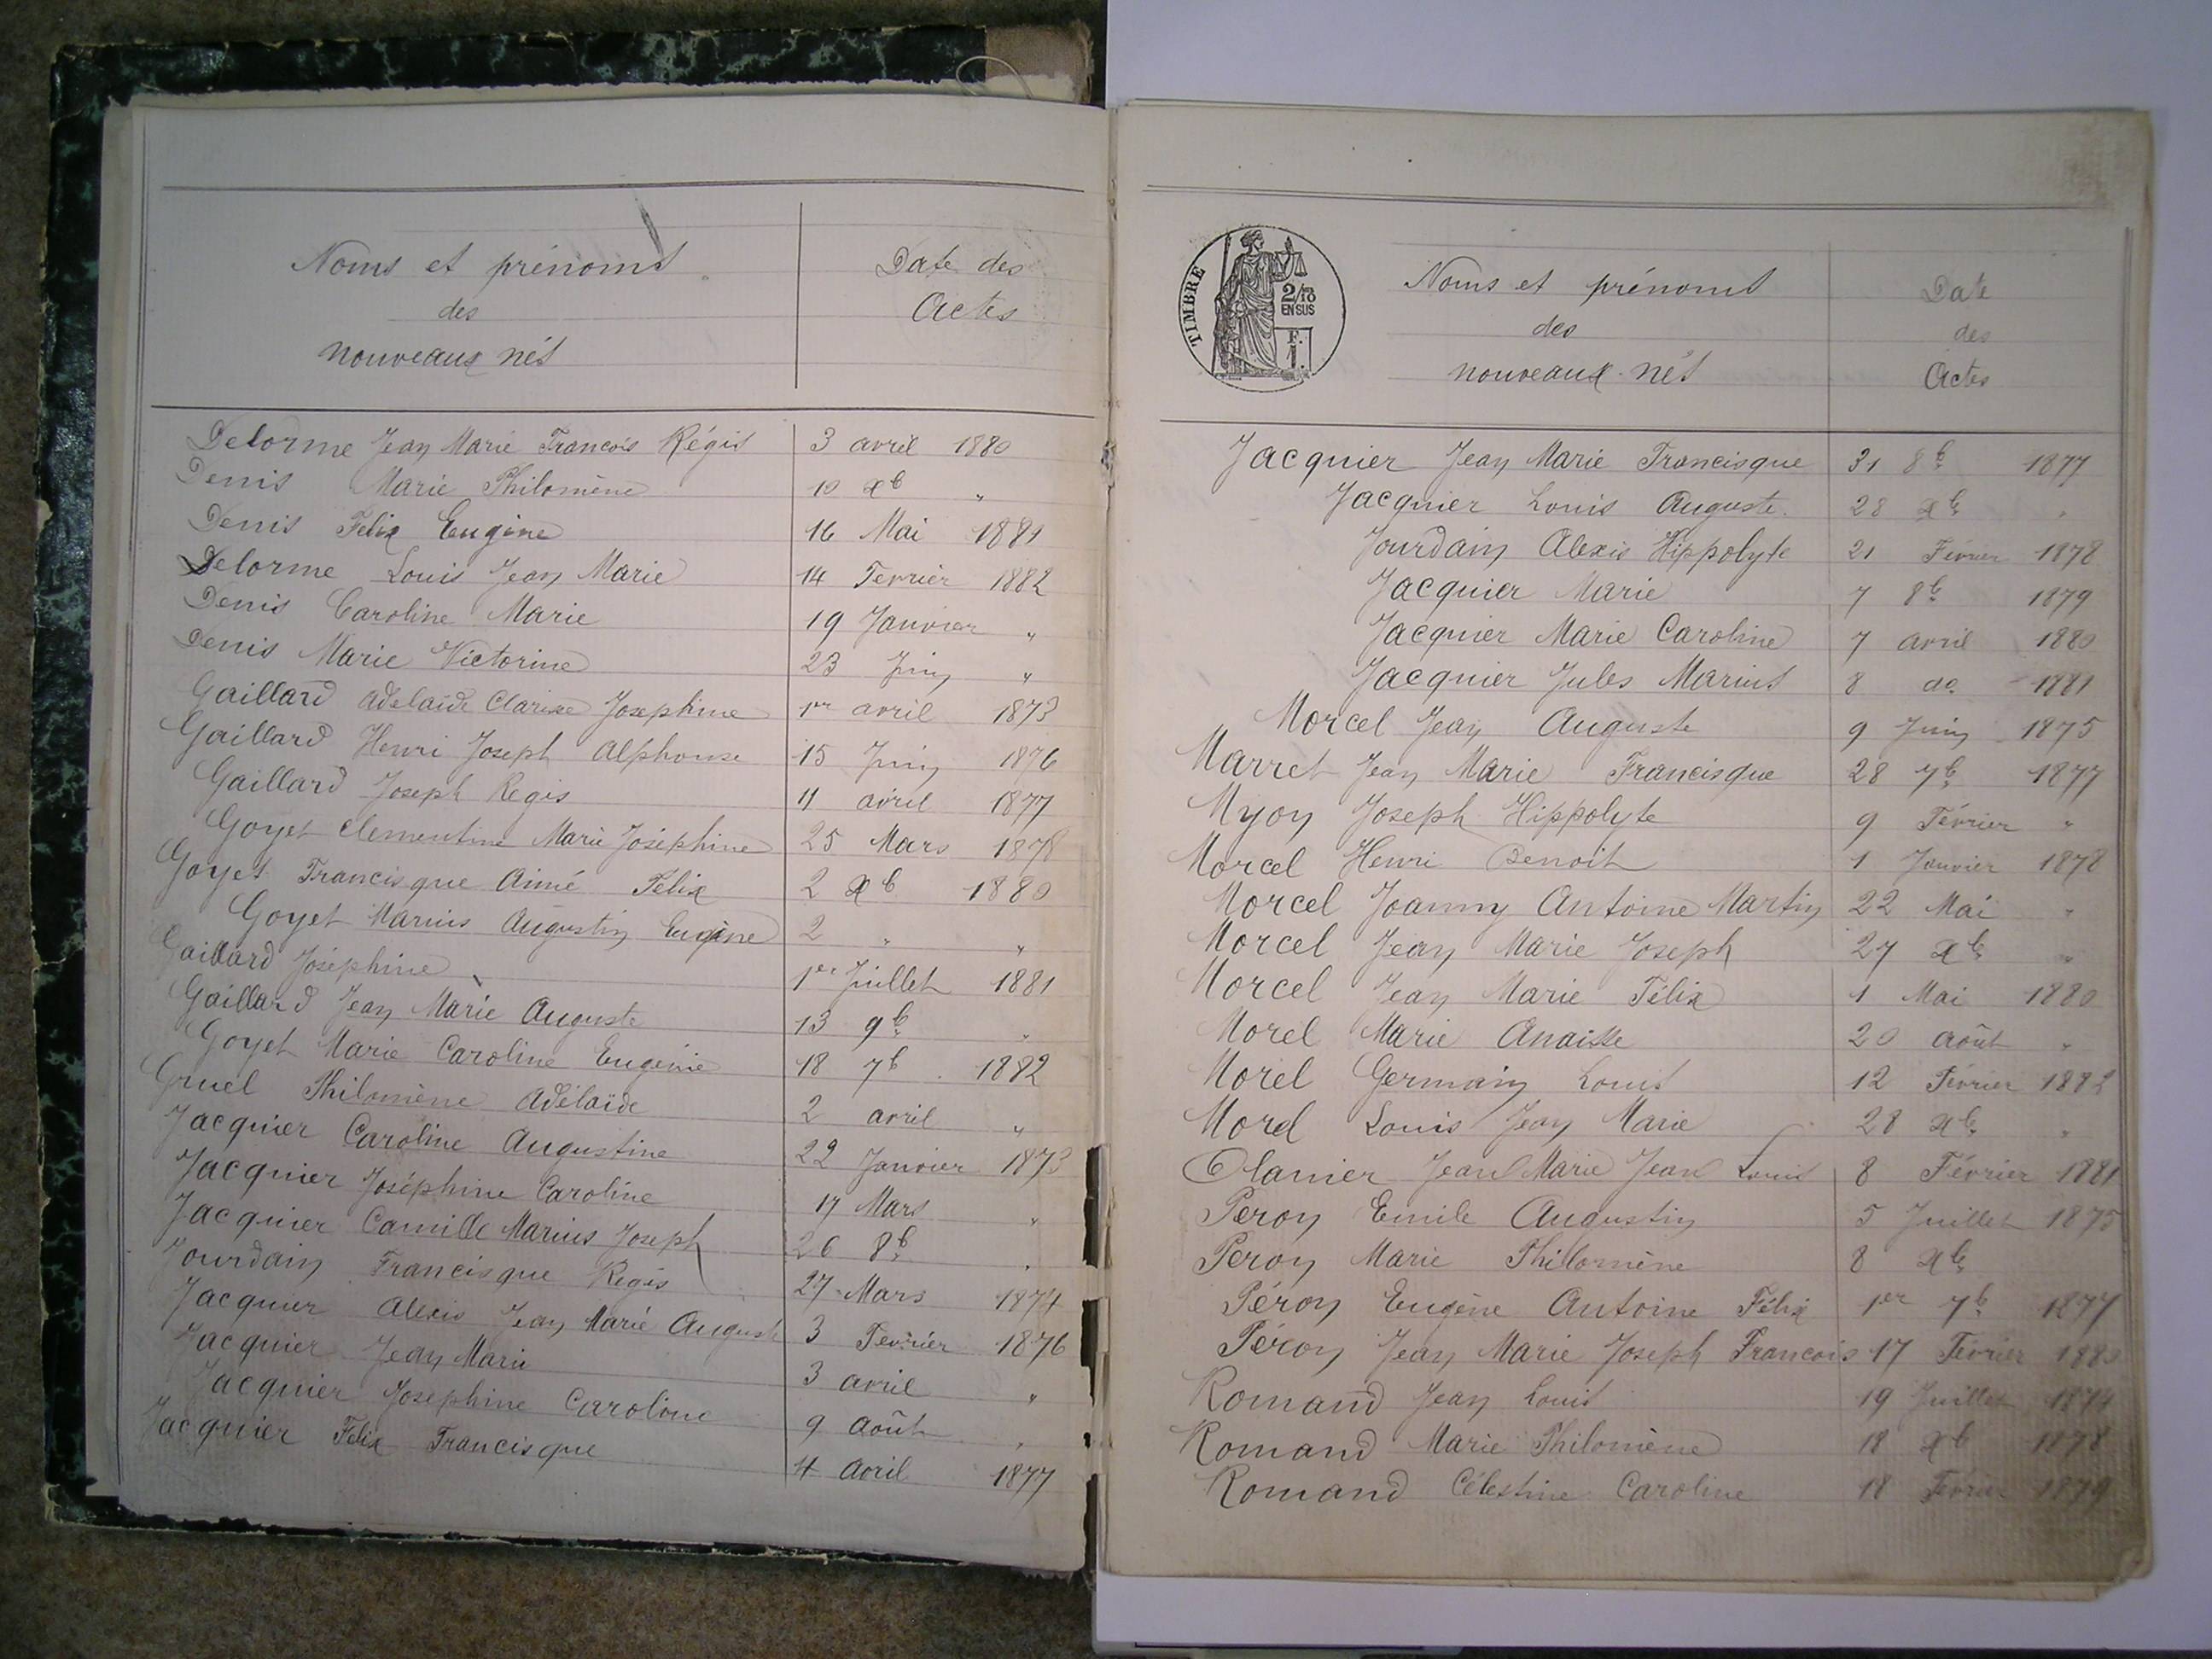 Noms et prénoms
des
nouveaux nés
Date des
Actes
Delorme Jean Marie Francois Régis 3 avril 1880
Denis Marie Philomène 10 xb "
Denis Felix Eugène 16 Mai 1881
Delorme Louis Jean Marie 14 Fevrier 1882
Denis Caroline Marie 19 Janvier "
Denis Marie Victorine 23 Juin "
Gaillard Adelaïde Clarisse Josephine 1er avril 1873
Gaillard Henri Joseph Alphonse 15 Juin 1876
Gaillard Joseph Regis 11 avril 1877
Goyet Clementine Marie Joséphine 25 Mars 1878
Goyet Francisque Aimé Félix 2 xb 1880
Goyet Marius Augustin Eugène 2 " "
Gaillard Joséphine 1er Juillet 1881
Gaillard Jean Marie Auguste 13 9b "
Goyet Marie Caroline Eugénie 18 7b 1882
Gruel Philomène Adélaïde 2 avril "
Jacquier Caroline Augustine 22 Janvier 1873
Jacquier Joséphine Caroline 17 Mars "
Jacquier Camille Marius Joseph 26 8b "
Jourdain Francisque Regis 27 Mars 1874
Jacquier Alexis Jean Marie Auguste 3 Fevrier 1876
Jacquier Jean Marie 3 avril "
Jacquier Josephine Caroline 9 Août "
Jacquier Felix Francisque 4 Avril 1877
TIMBRE
2/10
EN SUS
F.
1.
Noms et prénoms
des
nouveaux-nés
Date
des
Actes
Jacquier Jean Marie Francisque 31 8b 1877
Jacquier Louis Auguste 28 xb "
Jourdain Alexis Hippolyte 21 Février 1878
Jacquier Marie 7 8b 1879
Jacquier Marie Caroline 7 avril 1880
Jacquier Jules Marius 8 do 1881
Morcel Jean Auguste 9 Juin 1875
Marret Jean Marie Francisque 28 7b 1877
Myon Joseph Hippolyte 9 Février "
Morcel Henri Benoit 1 Janvier 1878
Morcel Joanny Antoine Martin 22 Mai "
Morcel Jean Marie Joseph 27 xb "
Morcel Jean Marie Félix 1 Mai 1880
Morel Marie Anaïsse 20 août "
Morel Germain Louis 12 Février 1882
Morel Louis Jean Marie 28 xb "
Olanier Jean Marie Jean Louis 8 Février 1881
Peron Emile Augustin 5 Juillet 1875
Peron Marie Philomène 8 xb
Péron Eugène Antoine Félix 1er 7b 1877
Péron Jean Marie Joseph Francois 17 Février
Romand Jean Louis 19 Juillet 1874
Romand Marie Philomène 18 xb 1878
Romand Célestine Caroline 18 Février 1879